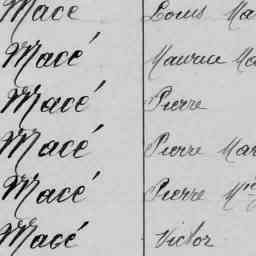 Macé Louis Ma
Macé Maurice Ma
Macé Pierre
Macé Pierre Mar
Macé Pierre Mie
Macé Victor